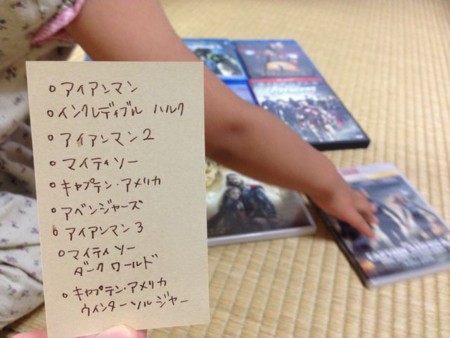 ○アイアンマン
○インクレディブル ハルク
○アイアンマン2
○マイティソー
○キャプテン・アメリカ
○アベンジャーズ
○アイアンマン3
○マイティソー
ダークワールド
○キャプテン・アメリカ
ウィンターソルジャー